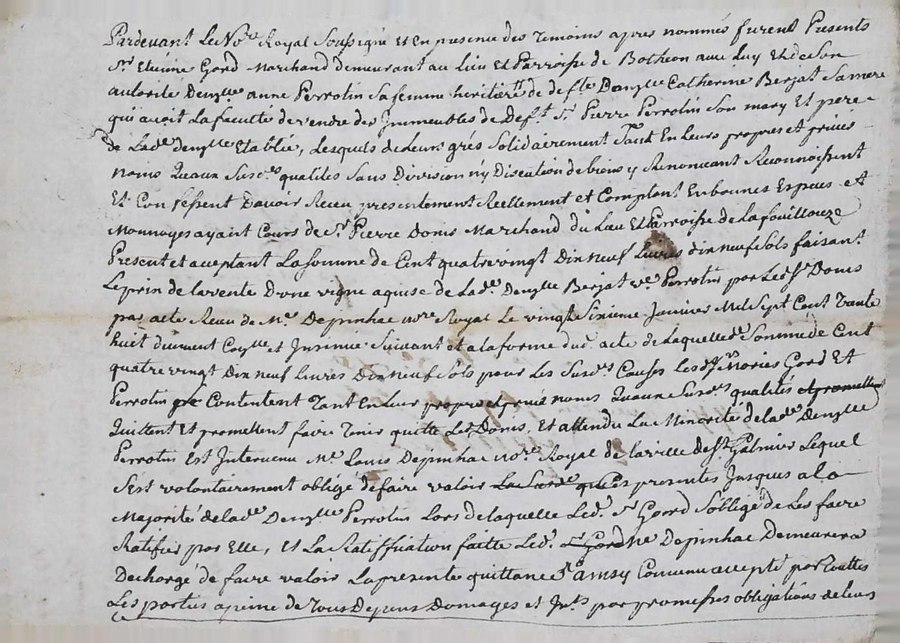 Pardevant Le No.re Royal Soussigné et En presence des Temoins apres nommés furent Presents
Sr. Etienne Gord Marchand demeurant au Lieu et Parroisse de Botheon avec Luy et de Son
autorité Denzlle anne Perrotin Sa femme heritiere de deffte Danzlle Catherine Berjat Sa mere
qui avoit La faculté de vendre des Immeubles de Deft. Sr. Pierre Perrotin Son mary Et pere
de Lade. denzlle Etablie, Lesquels de Leurs grés Solidairement Tant En Leurs propres et privés
noms Qu'aux Susds. qualités Sans Division n'y Discution de biens y Renonceant Reconnoissent
Et Confessent D'avoir Receu presentement Reellement et Comptant En bonnes Especes et
Monnoyes ayant Cours de Sr. Pierre Donis Marchand du Lieu Et Parroisse de La fouillouze
Present et acceptant La Somme de Cent quatre vingt Dix neuf Livres dix neuf Sols faisant
Le prix de la vente D'une vigne acquise de Lade. Denzlle Berjat ve. Perrotin par Led. Sr. Donis
par acte Receu de Me. Depinhac no.re Royal Le vingt Sixieme Janvier Mil Sept Cent Trente
huit duement Coñllé et Insinué Suivant et a la forme dud. acte de Laquelle de. Somme de Cent
quatre vingt Dix neuf Livres Dix neuf Sols pour Les Susds. Causes Lesds. Mariés Gord Et
Perrotin Se Contentent Tant En Leur propre et privés noms Qu'aux Susds. qualités et promettent
Quittent Et promettent faire Tenir quitte Led. Donis, Et attendu La Minorité de lade. Denzlle
Perrotin Est Intervenu Me. Louis Depinhac no.re Royal de la ville de St. Galmier Lequel
S'est volontairement obligé de faire valoir La Susde. qu Ces presentes Jusques a la
Majorité de lade. Denzlle Perrotin Lors de laquelle Led. Sr. Gord S'oblige de Les faire
Ratifier par Elle, et La Ratiffication faitte Led. Sr. Gord Me Depinhac Demeurera
Dechargé de faire valoir La presente quittance Et ainsy Convenu accepté par Touttes
Les parties a peine de Tous Depens Domages et Jnts. par promesses obligations de Leurs